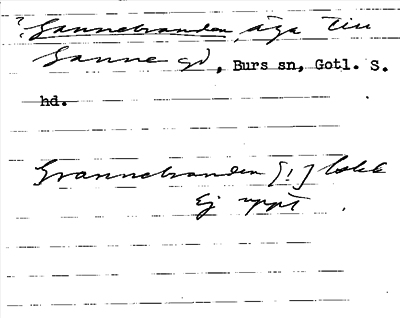 ? Gannebranden, äga till
Ganne gd, Burs sn, Gotl. S.
hd.
Grannebranden [!] lokk
Ej uppt.